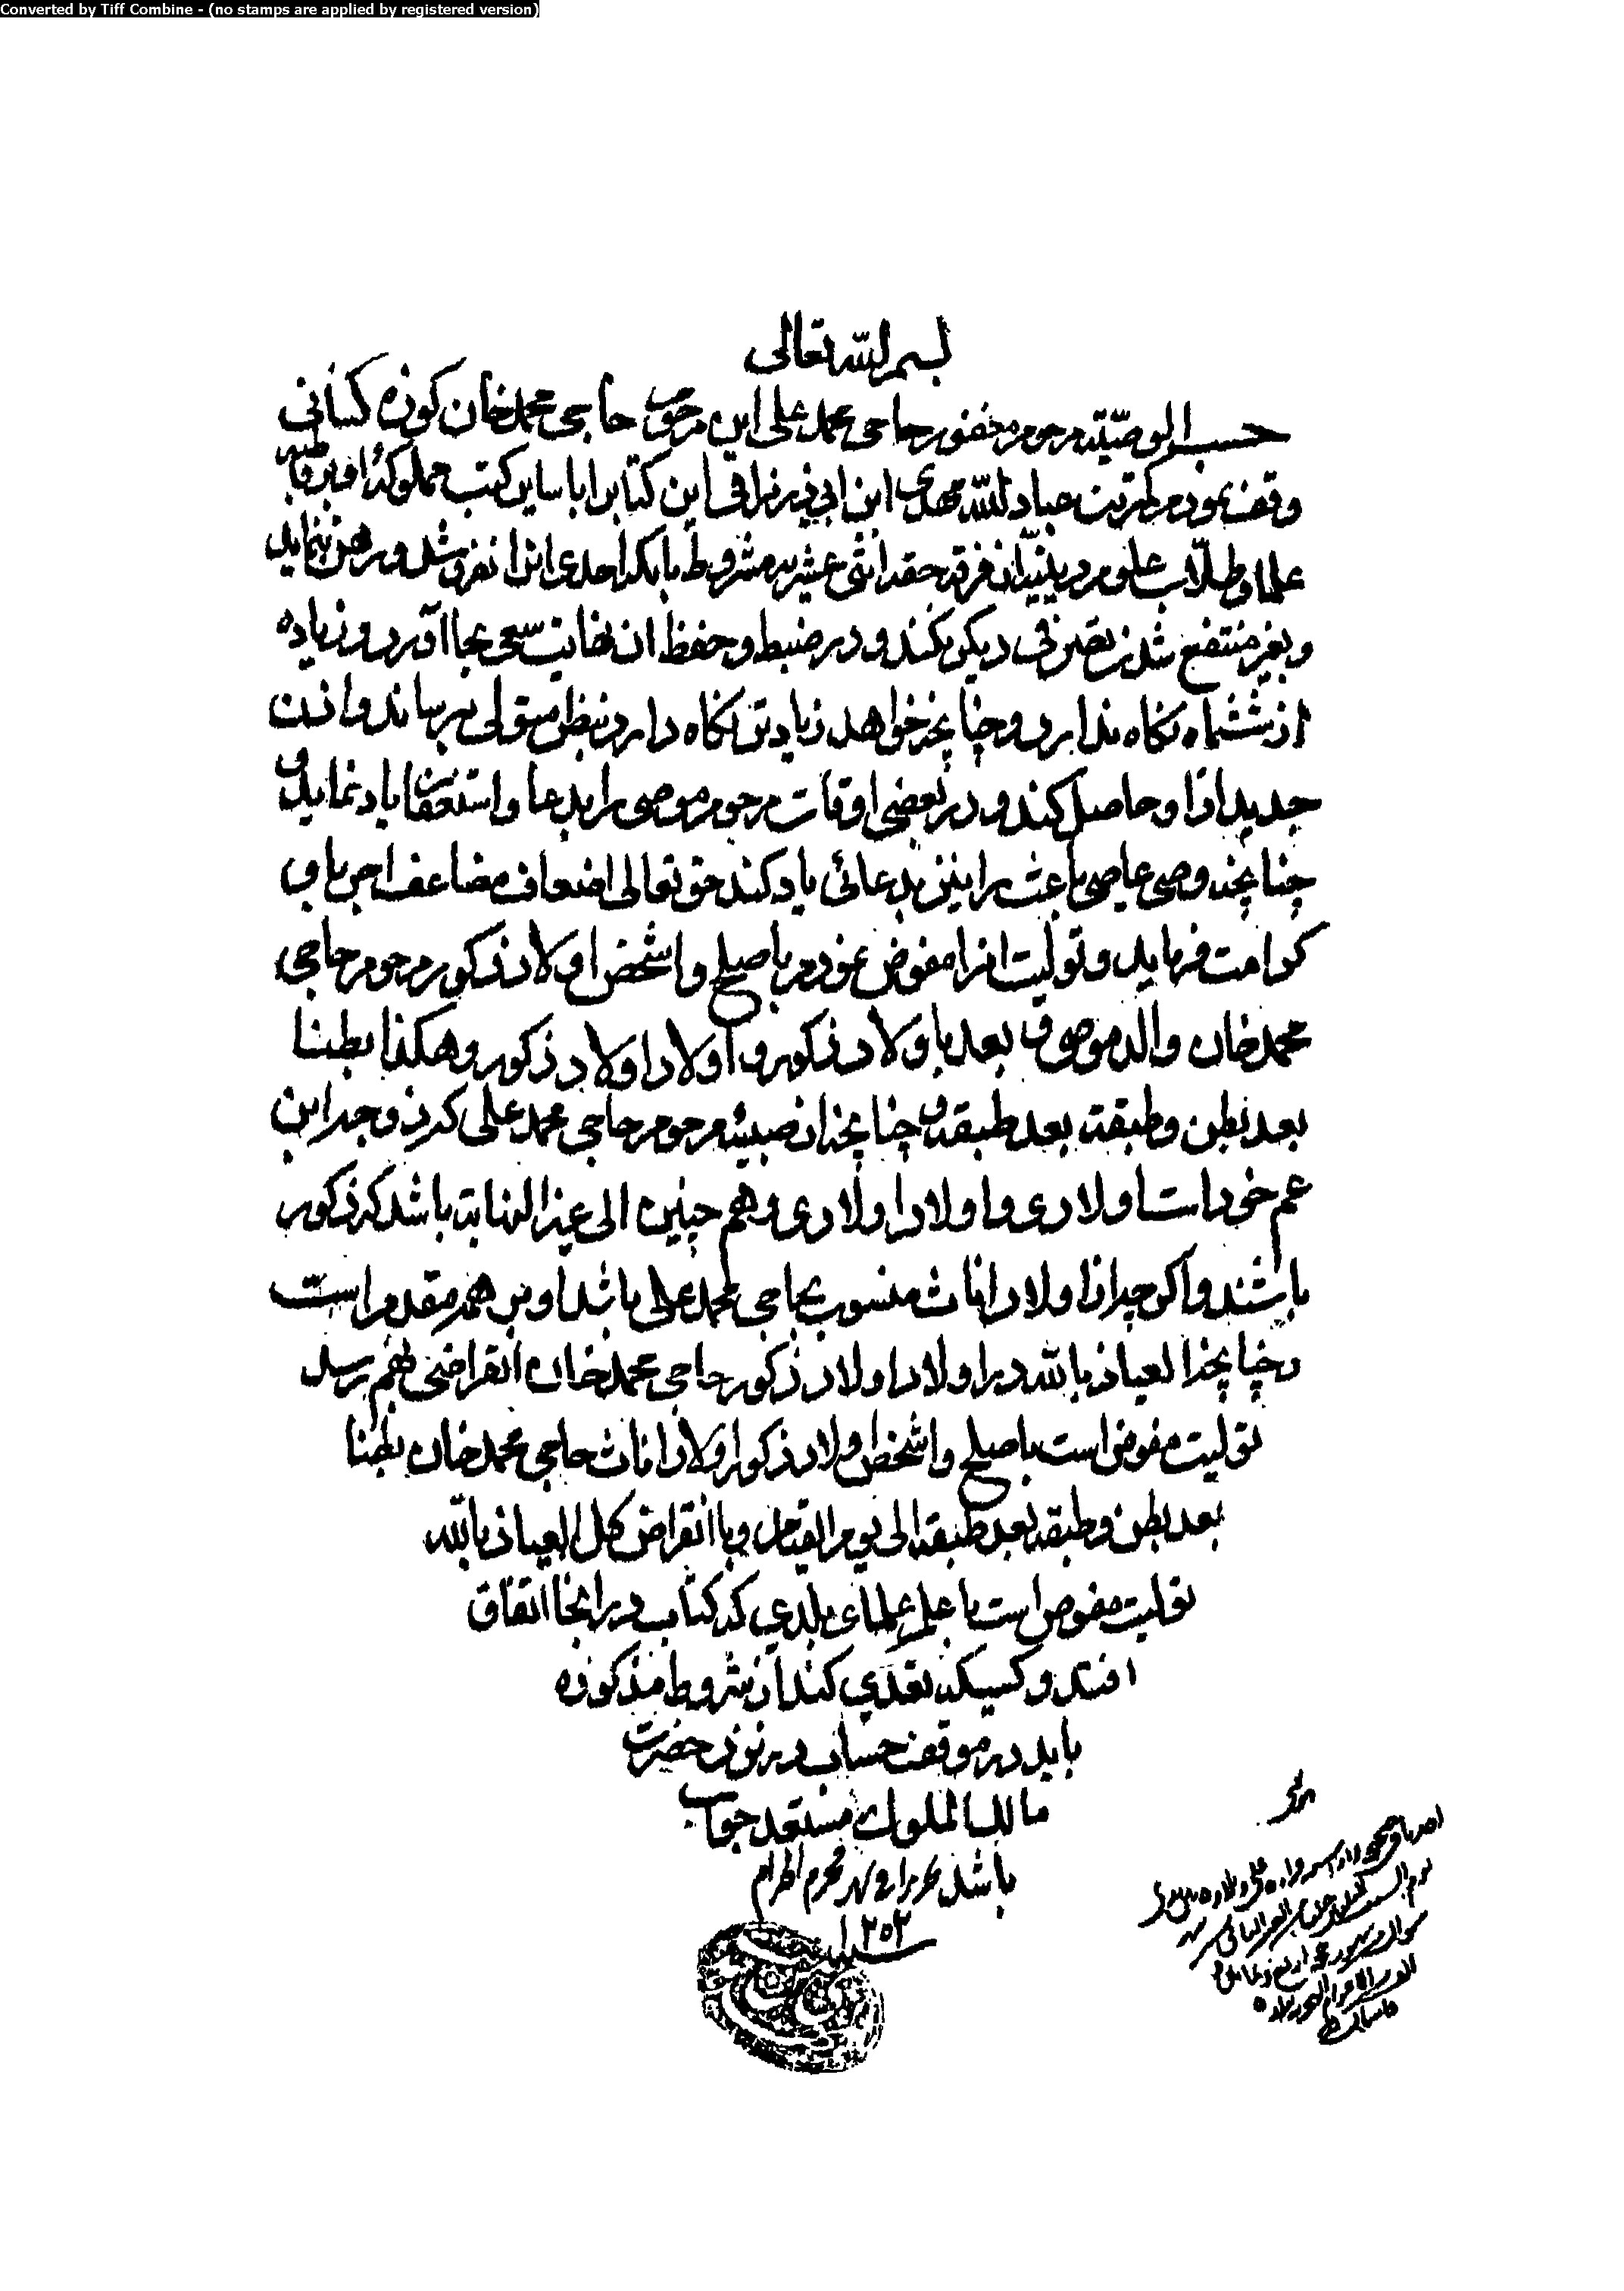 Converted by Tiff Combine - (no stamps are applied by registered version)
بسم الله تعالی
حسب الوصیّة مرحوم مغفور حاجی محمد علی ابن مرحوم حاجی محمد خان کوزه کنانی
وقف نمودم کمترین عباد الله مهدی ابن ابی ذر نراقی این کتابرا با سایر کتب مملوکه او بر قاطبه
علما و طلّاب علوم دینیّه از فرقه حقه اثنی عشریه مشروط بانکه احدی انرا نفروشد و رهن ننماید
و بغیر منتفع شدن تصرّفی دیگر نکند و در ضبط و حفظ ان نهایت سعی بجا آورد و زیاده
از ششماه نکاه ندارد و چنانچه خواهد زیادتر نکاه دارد بنظر متولی برساند و اذن
جدید از او حاصل کند و در بعضی اوقات مرحوم موصی را بدعا و استغفار یاد نماید و
چنانچه وصی عاصی باعث را نیز بدعائی یاد کند حق تعالی اضعاف مضاعف اجر باو
کرامت فرماید و تولیت انرا مفوض نمودم باصلح و اشخص اولاد ذکور مرحوم حاجی
محمد خان والد موصوف بعد باولاد ذکور و اولاد اولاد ذکور و هکذا بطنا
بعد بطن و طبقة بعد طبقة و چنانچه از صبیه مرحوم حاجی محمد علی که زوجه ابن
عم خود است اولادی و اولاد اولادی و هم چنین الی غیر النهایة باشد که ذکور
باشند و اکر چه از اولاد اناث منسوب بحاجی محمد علی باشد او بر همه مقدم است
و چنانچه العیاذ بالله در اولاد اولاد ذکور حاجی محمد خان انقراضی بهم رسد
تولیت مفوض است باصلح و اشخص اولاد ذکور اولاد اناث حاجی محمد خان بطنا
بعد بطن و طبقه بعد طبقه الی یوم القیام و با انقراض کل العیاذ بالله
تولیت مفوض است باعلم علمای بلدی که کتاب در انجا اتفاق
افتد و کسیکه تعدّی کند از شروط مذکوره
باید در موقف حساب در نزد حضرت
مالک الملوک مستعد جواب
باشد تحریرا فی شهر محرم الحرام
سنه ۱۲۵۲